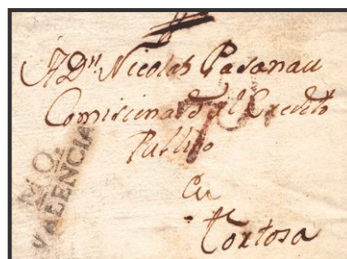 A Dn. Nicolas Pasanau
Comisionado del Credito
Publico
en
Tortosa
M.Q.
VALENCIA